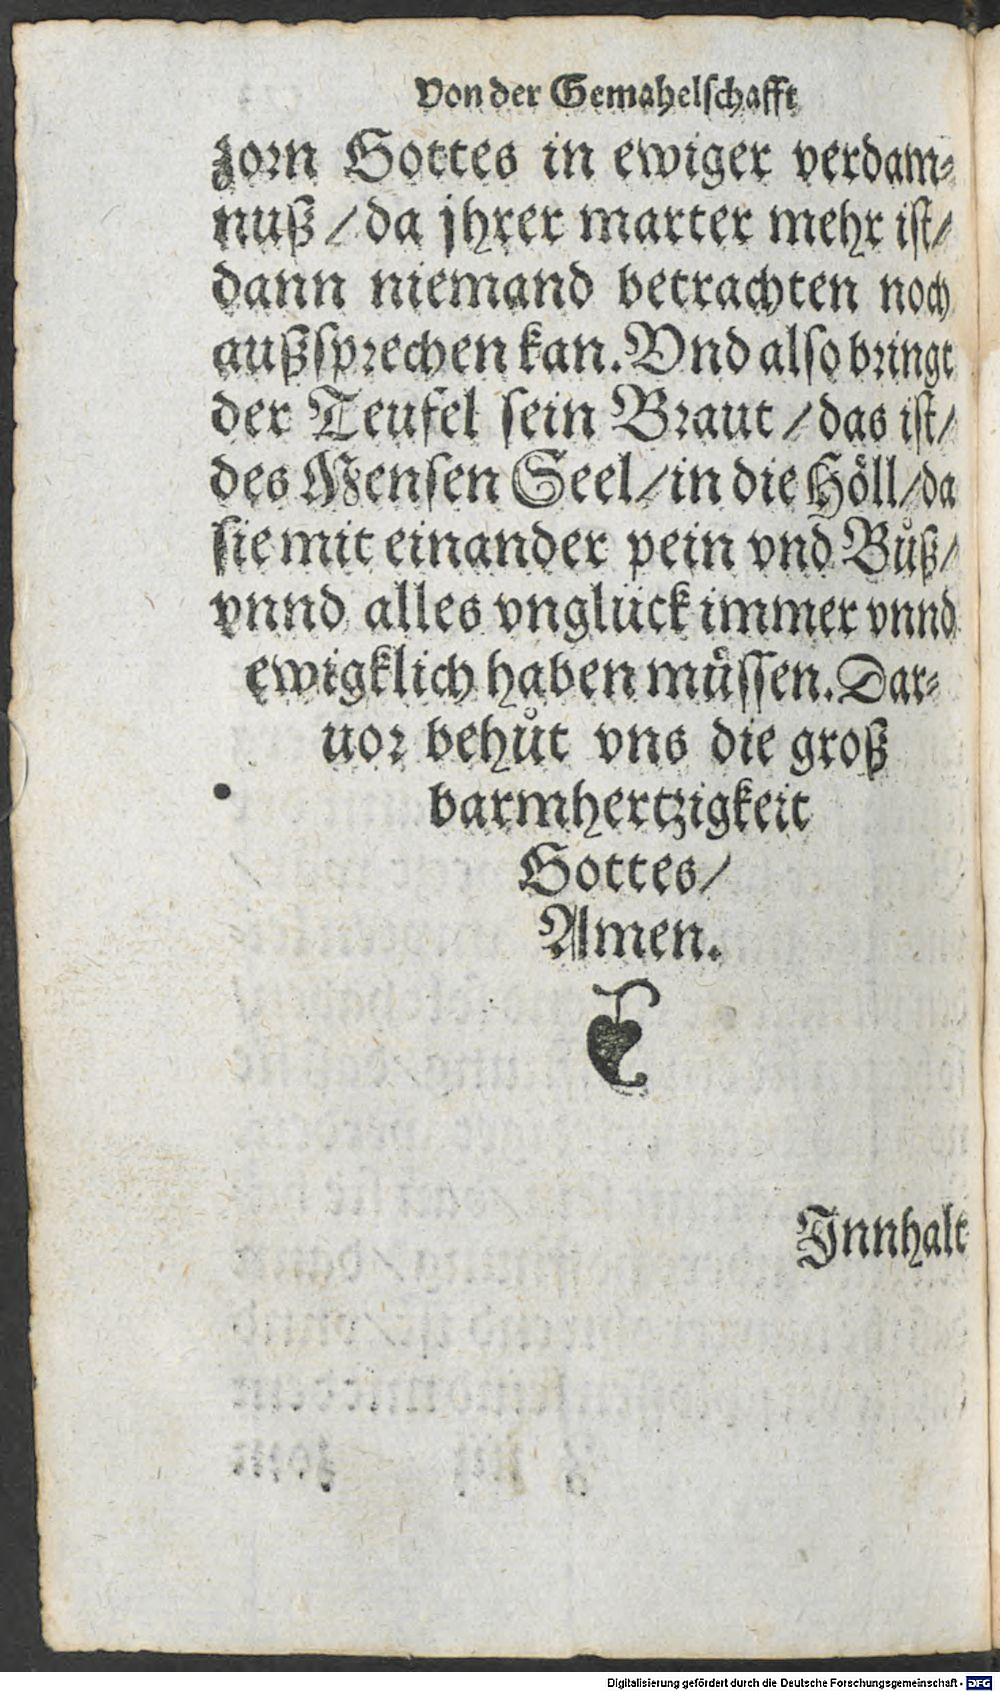 Von der Gemahelschafft
zorn Gottes in ewiger verdam⸗
nuß / da jhrer marter mehr ist /
dann niemand betrachten noch
außsprechen kan. Vnd also bringt
der Teufel sein Braut / das ist /
des Mensen Seel / in die Höll / da
sie mit einander pein vnd Bůß /
vnnd alles vngluck immer vnnd
ewigklich haben müssen. Dar⸗
uor behůt vns die groß
barmhertzigkeit
Gottes /
Amen.
Innhalt
Digitalisierung gefördert durch die Deutsche Forschungsgemeinschaft - DFG